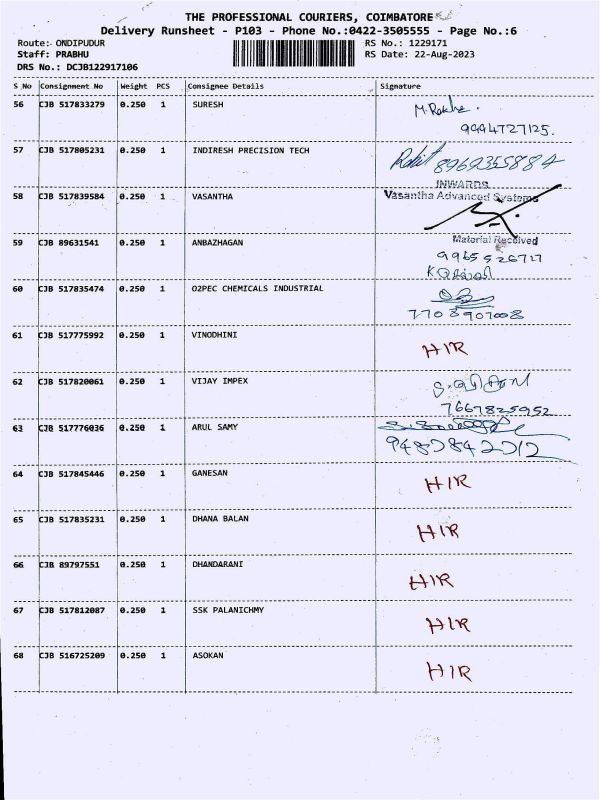 THE PROFESSIONAL COURIERS, COIMBATORE
Delivery Runsheet - P103 - Phone No.:0422-3505555 - Page No.:6
Route:- ONDIPUDUR RS No.: 1229171
Staff: PRABHU RS Date: 22-Aug-2023
DRS No.: DCJB122917106
S No Consignment No Weight PCS Consignee Details Signature
56 CJB 517833279 0.250 1 SURESH
9994727125.
57 CJB 517805231 0.250 1 INDIRESH PRECISION TECH Rohit 8969355884
INWARDS
58 CJB 517839584 0.250 1 VASANTHA Vasantha Advanced Systems
Material Received
59 CJB 89631541 0.250 1 ANBAZHAGAN
9965526727
60 CJB 517835474 0.250 1 O2PEC CHEMICALS INDUSTRIAL
7708907008
61 CJB 517775992 0.250 1 VINODHINI HIR
62 CJB 517820061 0.250 1 VIJAY IMPEX
7667825952
63 CJB 517776036 0.250 1 ARUL SAMY
64 CJB 517845446 0.250 1 GANESAN HIR
65 CJB 517835231 0.250 1 DHANA BALAN HIR
66 CJB 89797551 0.250 1 DHANDARANI HIR
67 CJB 517812087 0.250 1 SSK PALANICHMY HIR
68 CJB 516725209 0.250 1 ASOKAN HIR